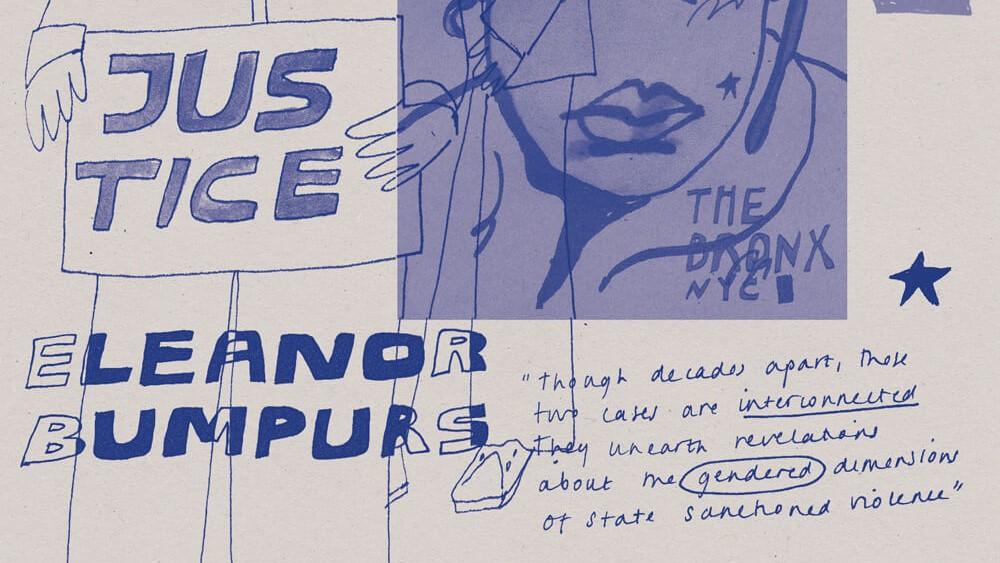 JUS
TICE
THE
BRONX
NYC
ELEANOR
BUMPURS
"though decades apart, these
two cases are interconnected
They unearth revelations
about the gendered dimensions
of state sanctioned violence"